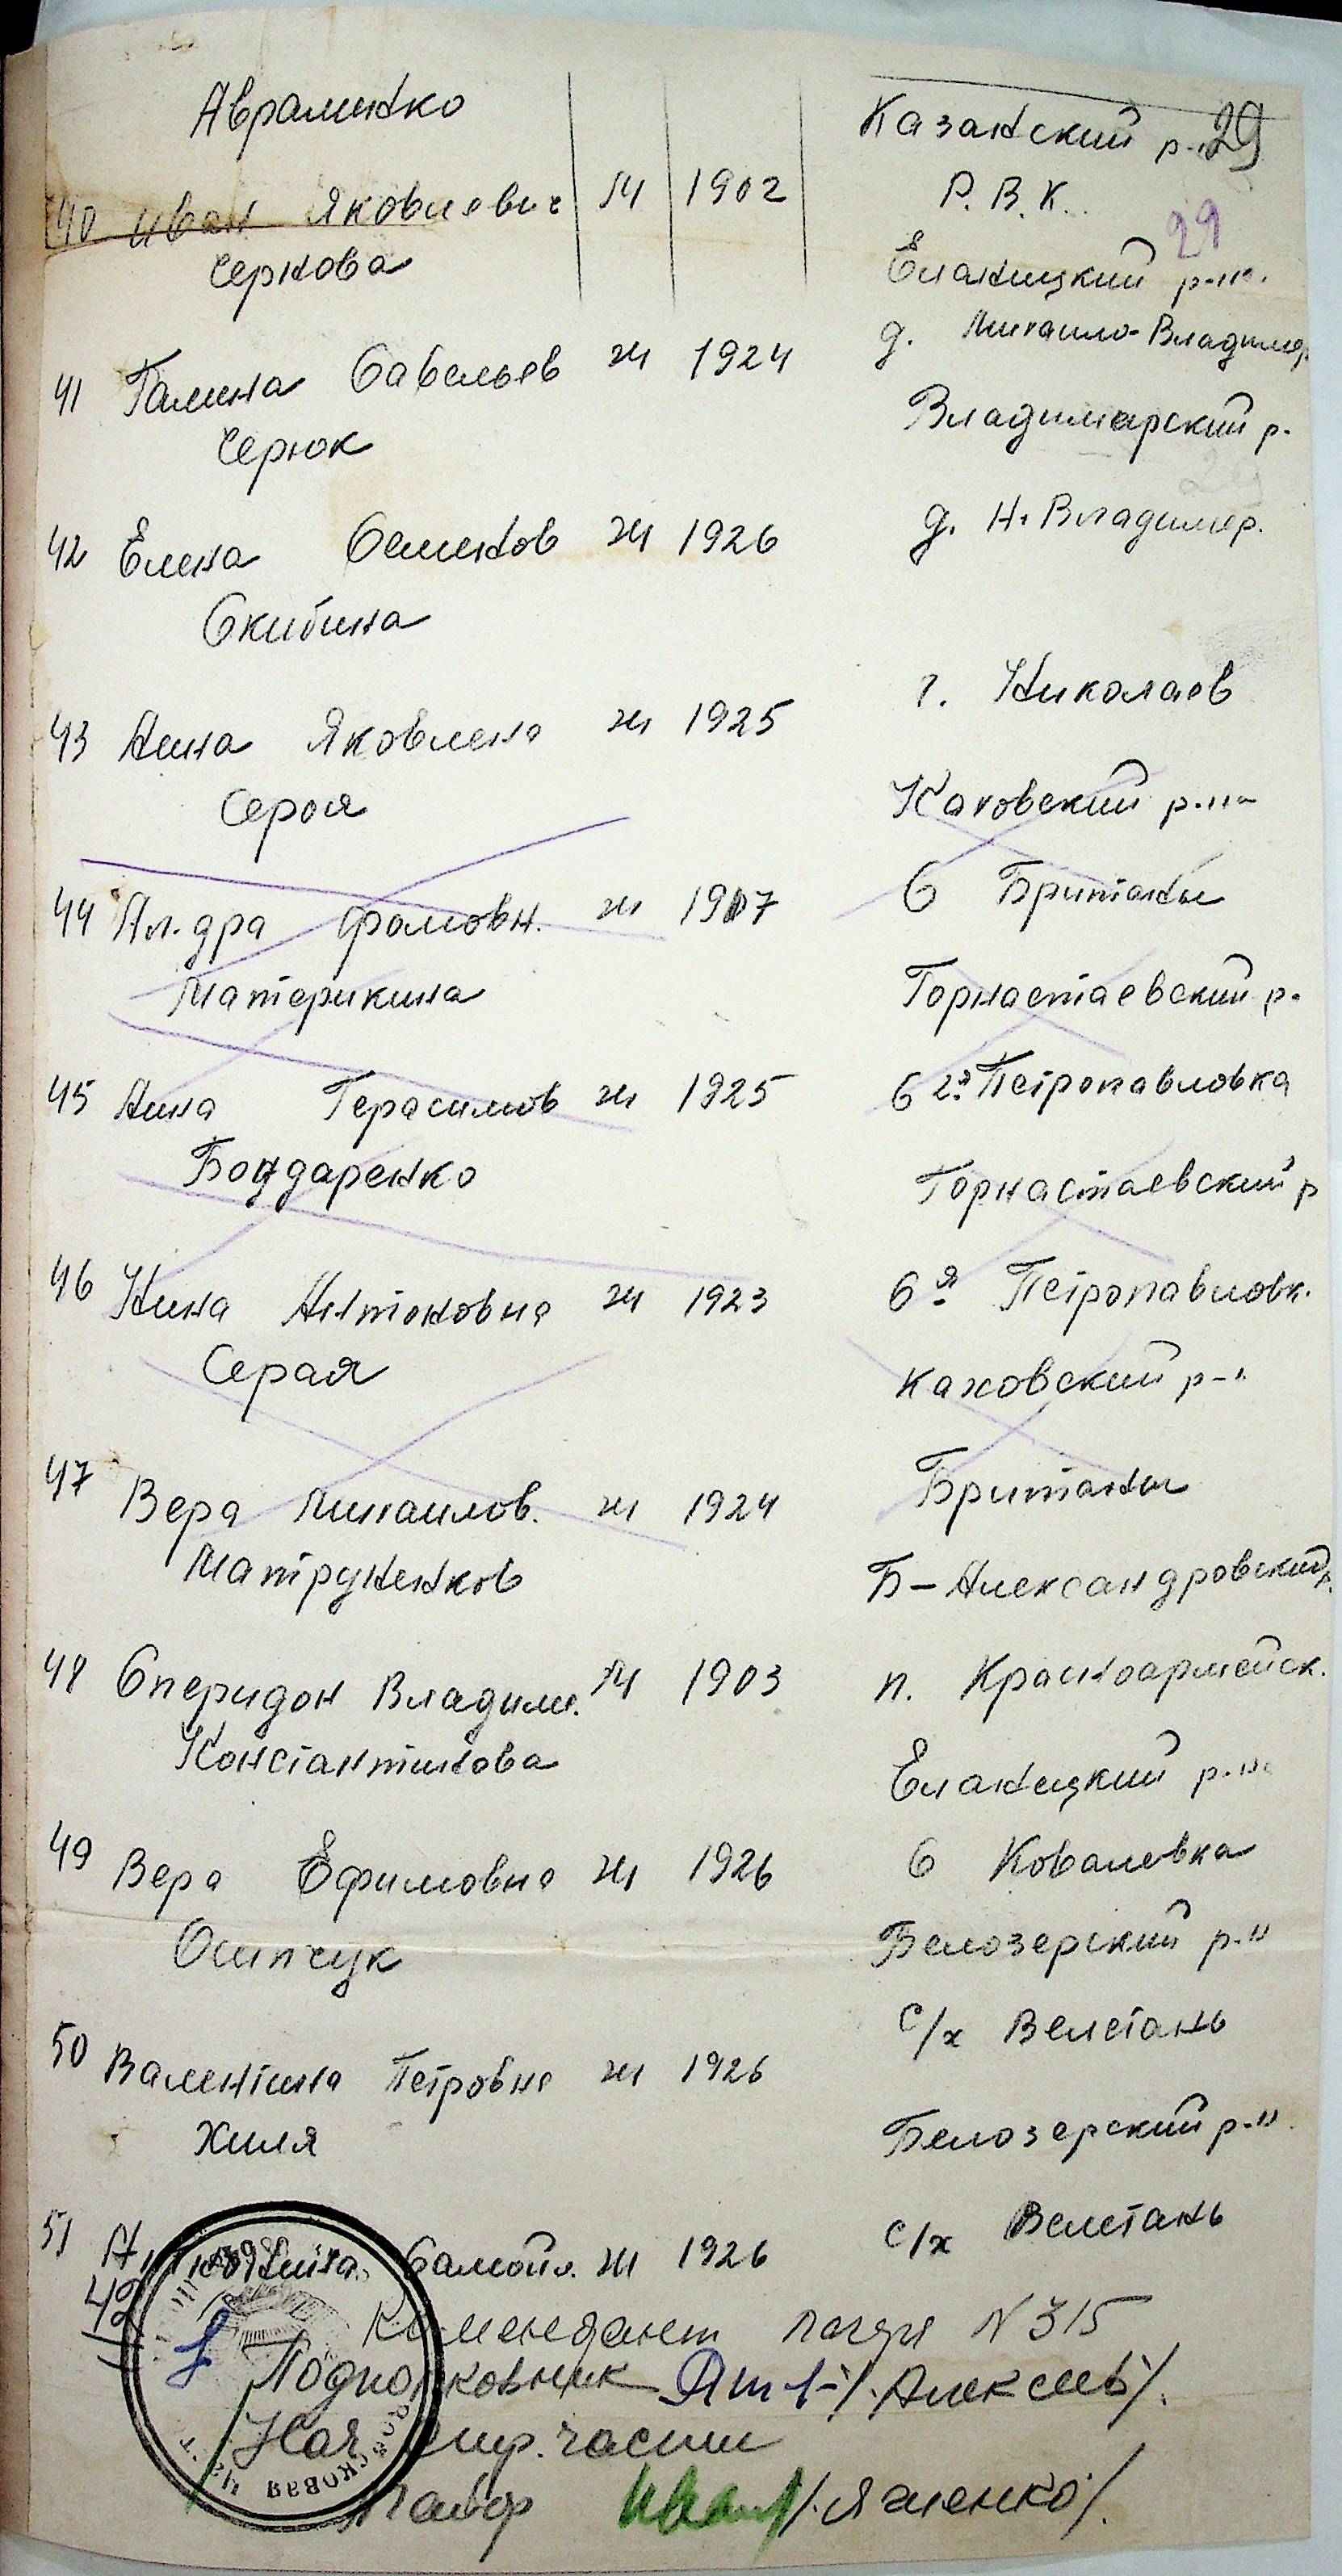 Аврами­нко Казанский р. 29
40 Иван Яковлевич М 1902 Р. В. К.
29
Чернова Еланецкий р-н.
41 Галина Савельев ж 1924 д. Михайло-Владимир.
Черюк Владимирский р.
42 Елена Семенов ж 1926 д. Н. Владимер.
Скибина
43 Анна Яковлена ж 1925 г. Николаев
Серая Каховский р-на
44 Ал.дра Фомовн. ж 1907 С Британы
Материкина Горнастаевский р.
45 Анна Герасимов ж 1925 с 2я Петропавловка
Бондаренко Горнастаевский р
46 Нина Антоновна ж 1923 6я Петропавловк.
Серая Каховский р-н
47 Вера Михаилов. ж 1924 Британы
Матруненков Б-Александровский р.
48 Сперидон Владим. М 1903 п. Красноармейск.
Константинова Еланецкий р-на
49 Вера Ефимовна ж 1926 С Коваловка
Осипчук Белозерский р-н
50 Валентина Петровна ж 1926 с/х Велетань
Хиля Белозерский р-н
51 Самойл. ж 1926 с/х Велетань
42
Комендант лагеря N 315
Подполковник /. Алексеев/.
Нач. части
Майор /. Яченко/.